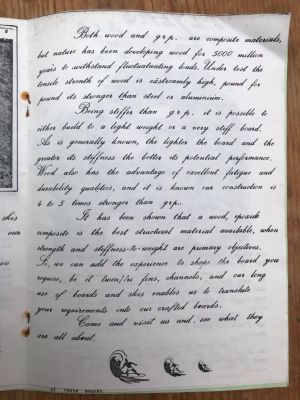 Both wood and g.r.p. are composite materials,
but nature has been developing wood for 5000 million
years to withstand fluctuatuating loads. Under test the
tensile strenth of wood is exstreamly high, pound for
pound its stronger than steel or aluminium.
Being stiffer than g.r.p. it is possible to
either build to a light weight or a very stiff board.
As is generally known, the lighter the board and the
greater its stiffness the better its potential performance.
Wood also has the advantage of excellent fatigue and
durability qualities, and it is known our construction is
4 to 5 times stronger than g.r.p.
It has been shown that a wood, epoxide
composite is the best structural material available, when
strength and stiffness-to-weight are primary objectives.
So, we can add the experience to shape the board you
require, be it twin/tri fins, channels, and our long
use of boards and skis enables us to translate
your requirements into our crafted boards.
Come and visit us and, see what they
are all about.
skis
our
of these ponies.